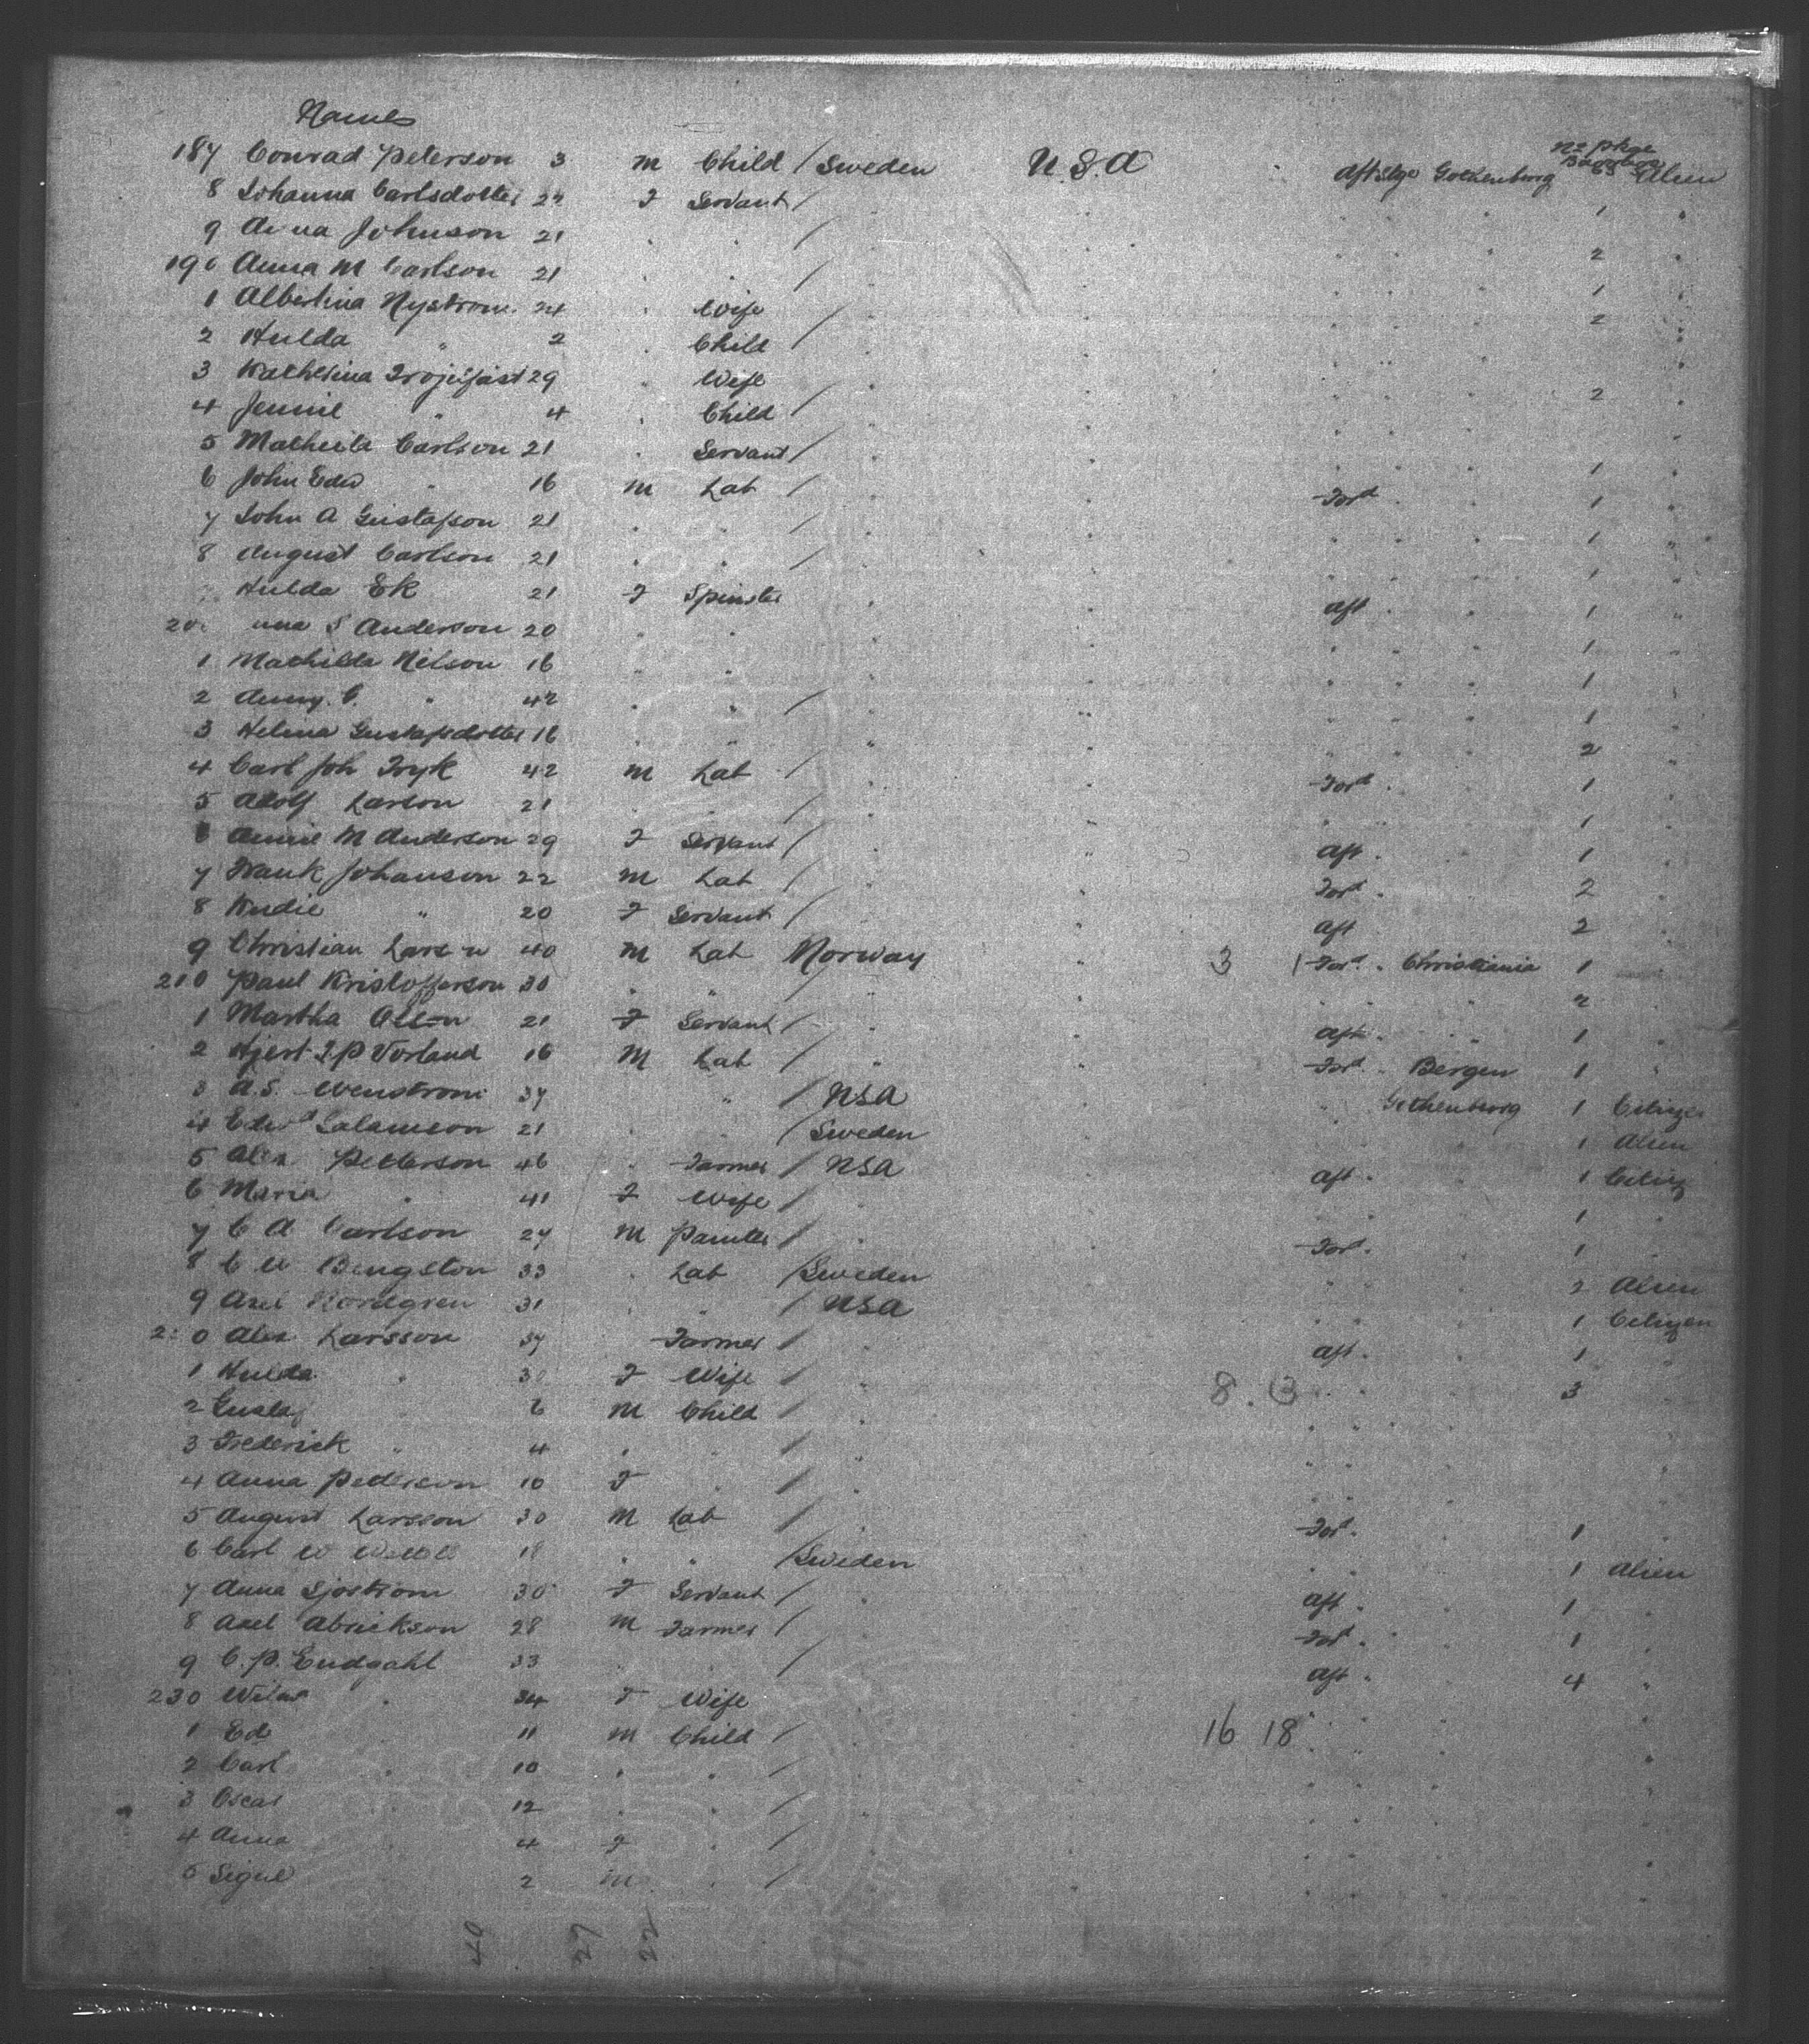 Names
No Pkge Baggage
187 Conrad Peterson 3 m Child / Sweden U.S.A Aft Stge Gothenborg Alien
8 Johanna Carlsdotter 24 F Servant / " " " 1 "
9 Anna Johnson 21 " " / " " " 2 "
190 Anna M Carlson 21 " " / " " " 1 "
1 Albertina Nystrom 24 " Wife / " " " 2 "
2 Hulda " 2 " Child / " " "
3 Katherina 29 " Wife " " " 2 "
4 Jennie " 4 " Child / " " "
5 Mathilda Carlson 21 " Servant / " " " 1 "
6 John Edw " 16 m Lab / " " Ford " 1 "
7 John A Gustafson 21 " " / " " " 1 "
8 August Carlson 21 " " / " " " 1 "
Hulda Ek 21 F Spinster " " Aft " 1 "
S Anderson 20 " " " " " 1 "
1 Mathilda Nelson 16 " " " " " 1 "
2 " 42 " " / " " " 1 "
3 Helina Gustafsdotter 16 " " " " " 2 "
4 Carl Joh Fryk 42 m Lab / " " Ford " 1 "
5 Adolf Larson 21 " " / " " " 1 "
6 Annie M Anderson 29 F Servant / " " Aft " 1 "
7 Frank Johanson 22 m Lab / " " Ford " 2 "
8 " 20 F Servant / " " Aft " 2 "
9 Christian Larsen 40 m Lab Norway " 3 1 Ford " Christiania 1 "
210 Paul Kristofferson 30 " " / " " " 2 "
1 Martha Olsen 21 F Servant / " " Aft " " 1 "
2 Hjert J.P Vorland 16 m Lab / " " Ford " Bergen 1 "
3 A.S. Wenstrom 37 " / USA " Gothenborg 1 Citizen
4 Edwd Salamson 21 " / Sweden " 1 Alien
5 Alex Petterson 46 " Farmer / USA Aft " 1 Citiz
6 Maria " 41 F Wife / " " 1 "
7 C A Carlson 27 m Painter / " Ford " 1 "
8 C W Bengston 33 " Lab / Sweden " 2 Alien
9 Axel Nordgren 31 " " / USA " 1 Citizen
0 Alex Larsson 37 Farmer / " Aft " 1 "
1 Hulda " 30 F Wife / " 8.13 " 3 "
2 Gustaf 6 m Child / " " "
3 Frederick " 4 " " / " " "
4 Anna Pederson 10 F " / " " "
5 August Larsson 30 m Lab / Ford " 1 "
6 Carl W 18 " " / Sweden " 1 Alien
7 Anna Sjostrom 30 F Servant / " Aft " 1 "
8 Axel Abrickson 28 m Farmer / " Ford " 1 "
9 C.P. Endgahl 33 " " / " Aft " 4 "
230 " 34 F Wife " " "
1 Ed 11 m Child / " 16 18 " "
2 Carl " 10 " " / " " "
3 Oscar " 12 " " / " " "
4 Anna " 4 F " / " " "
5 2 m " / " " "
40 27 22